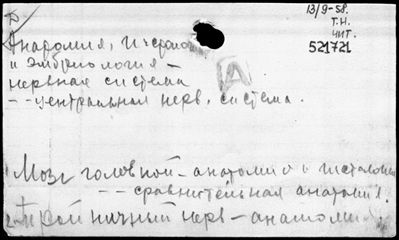 13/9-58.
Т.Н.
чит.
521721
Анатомия, гистоло
и эмбриология –
нервная система
-- центральная нерв. система.
А
Мозг головной – анатомия и гистология
-- сравнительная анатомия.
ничный нерв – анатомия